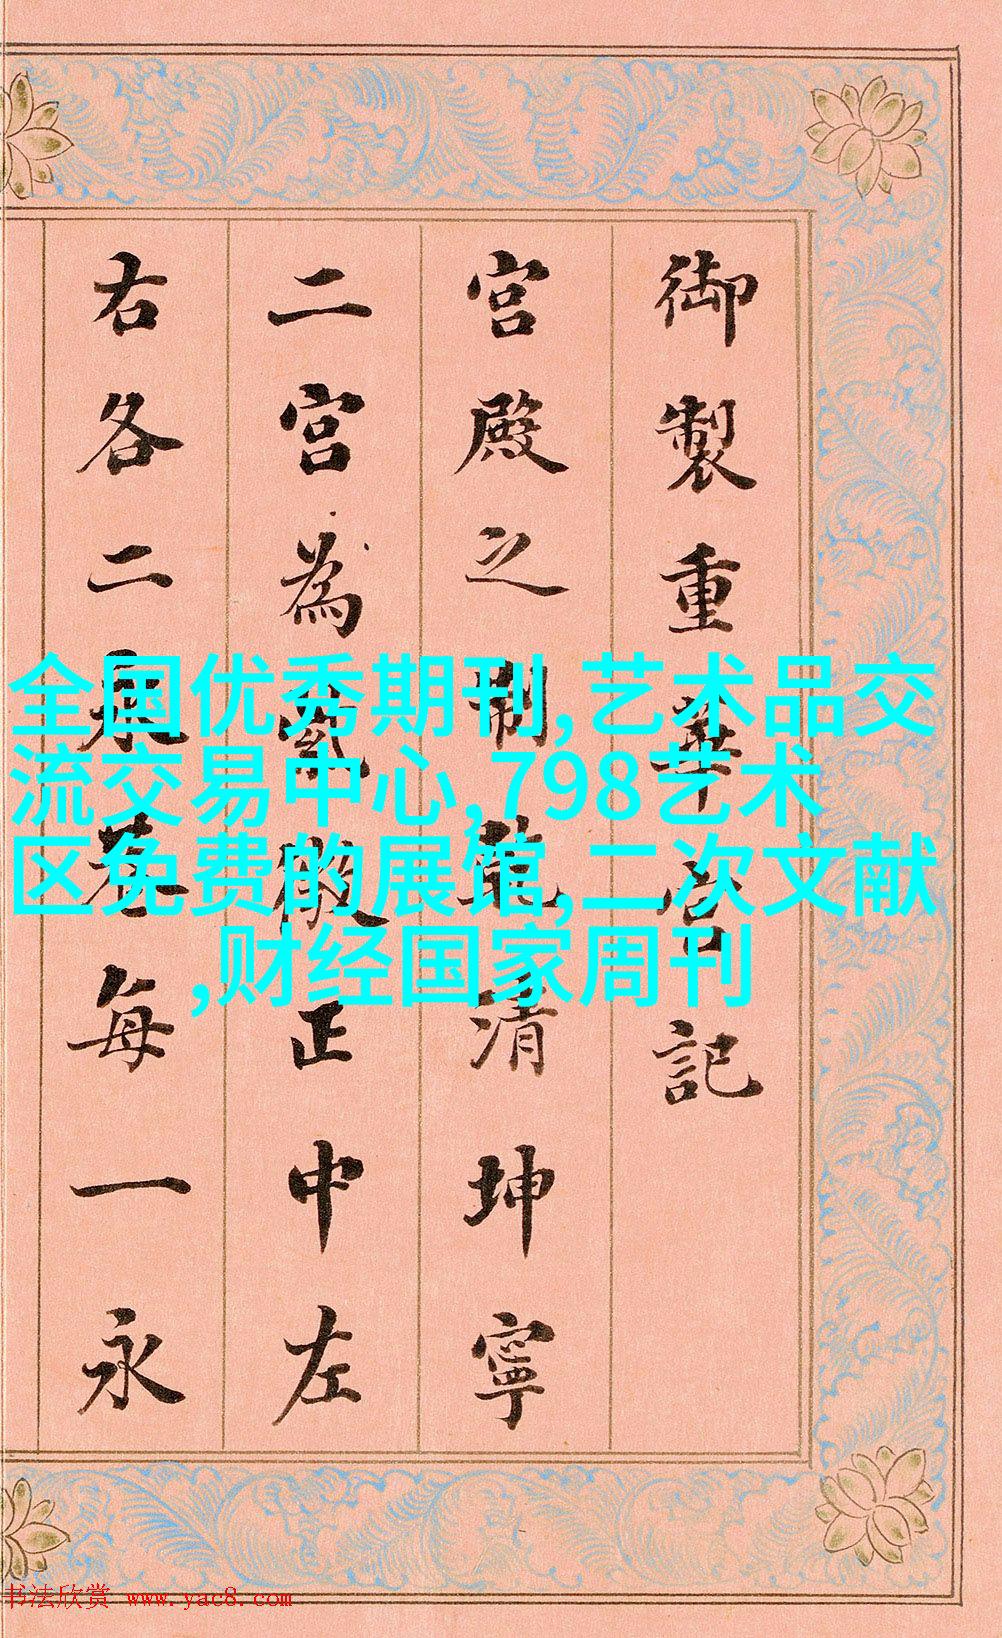 御製重華宮記
宮殿之制乾清坤寧
二宮為紫微正中左
右各二永巷每一永
全国优秀期刊,艺术品交
流交易中心,798艺术
区免费的展馆,二次文献
,财经国家周刊
书法欣赏 www.yac8.com